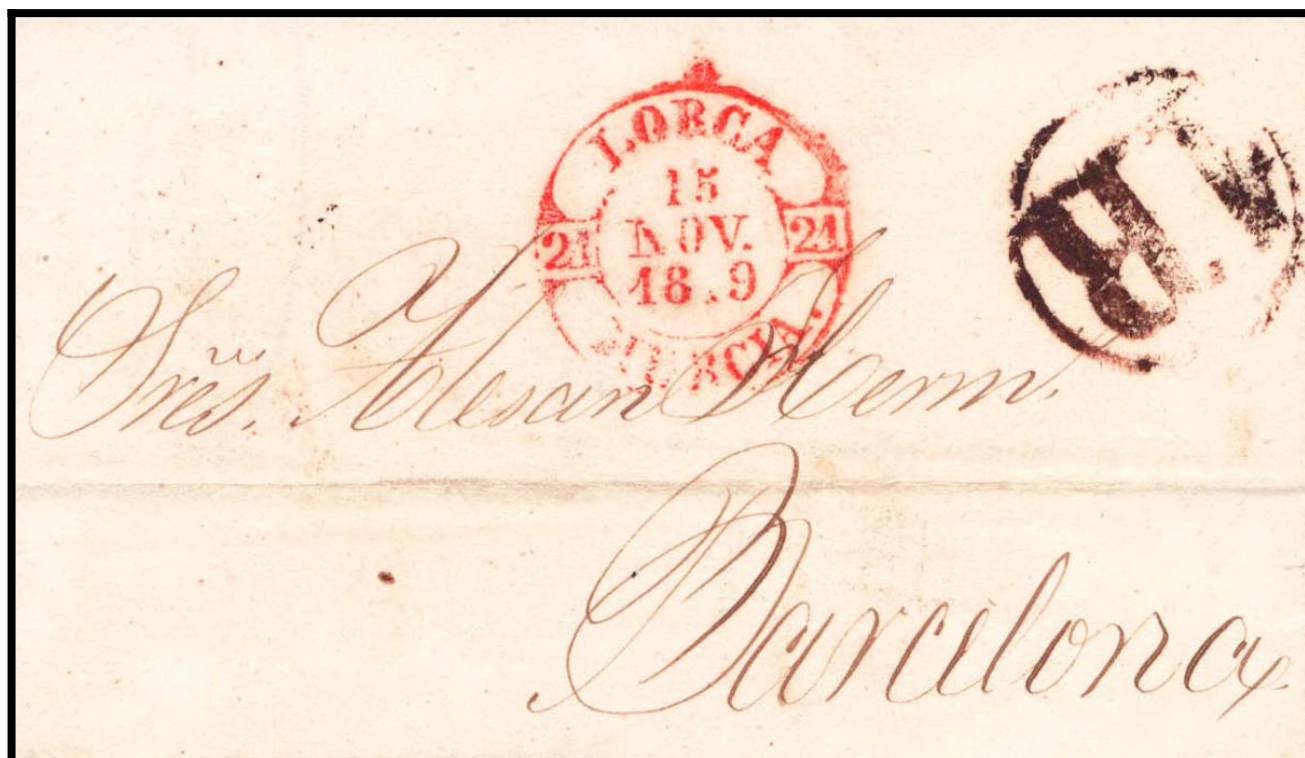 LORCA
15
24 NOV. 24
18 9
MURCIA.
1R
Sres. Alesan Herm.
Barcelona